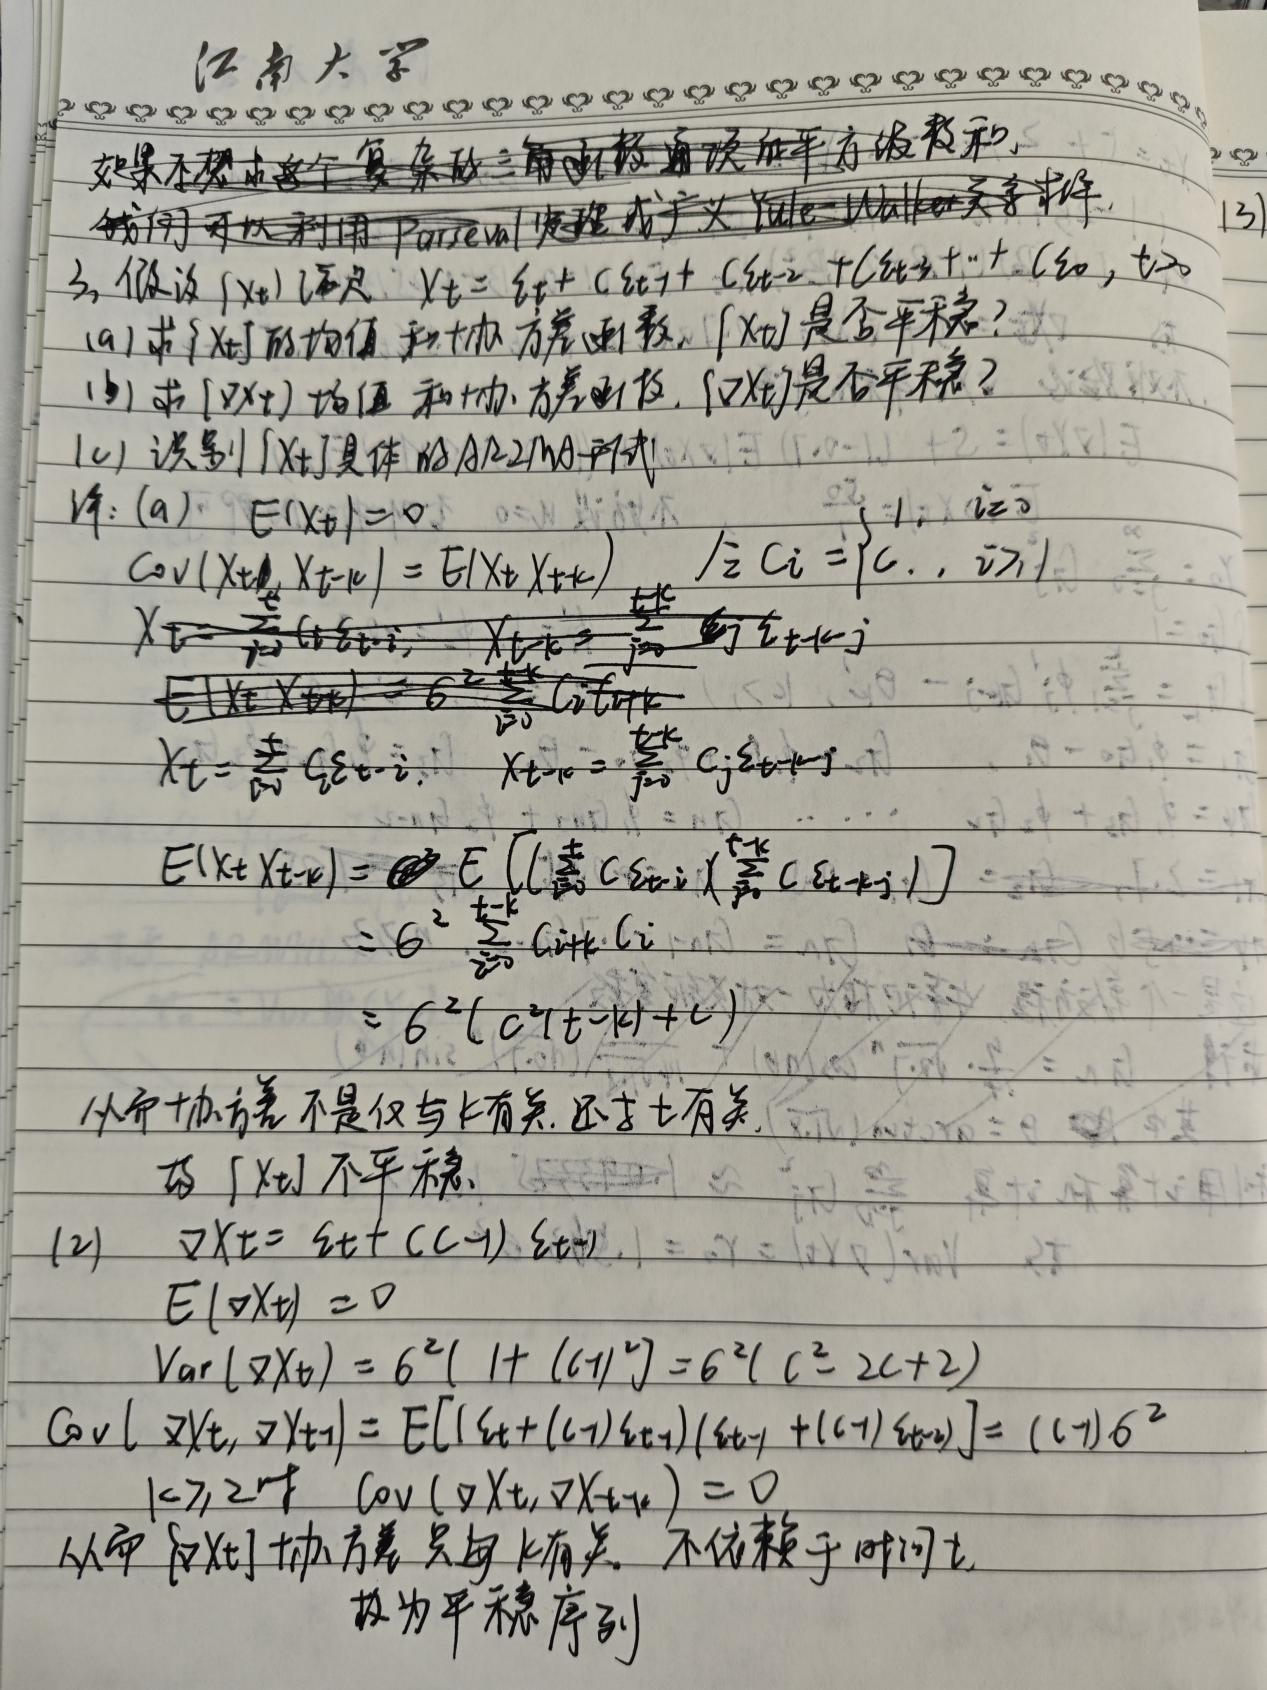 江南大学
如果不想求这个复杂的三角函数通项的平方级数和,
我们可以利用Parseval定理或广义Yule-Walker关系求解.
3, 假设{Xt}满足 Xt = εt + Cεt-1 + Cεt-2 + Cεt-3 + … + Cε0, t>0
(a) 求{Xt}的均值和协方差函数, {Xt}是否平稳?
(b) 求{∇Xt}均值和协方差函数. {∇Xt}是否平稳?
(c) 识别{Xt}具体的ARIMA形式
解: (a) E(Xt) = 0
Cov(Xt, Xt-k) = E(Xt Xt-k) 记 Ci = { 1, i=0
C, i≥1
Xt = Σ(i=0→t) Ci εt-i, Xt-k = Σ(j=0→t-k) Cj εt-k-j
E(Xt Xt-k) = 6² Σ(i=0→t-k) Ci Ci+k
Xt = Σ(i=0→t) Ci εt-i, Xt-k = Σ(j=0→t-k) Cj εt-k-j
E(Xt Xt-k) = E[(Σ(i=0→t) C εt-i)(Σ(j=0→t-k) C εt-k-j)]
= 6² Σ(i=0→t-k) Ci+k Ci
= 6²(C²(t-k)+C)
从而协方差不是仅与k有关. 还与t有关.
故{Xt}不平稳.
(2) ∇Xt = εt + (C-1) εt-1
E(∇Xt) = 0
Var(∇Xt) = 6²(1+(C-1)²] = 6²(C²-2C+2)
Cov(∇Xt, ∇Xt-1) = E[(εt+(C-1)εt-1)(εt-1+(C-1)εt-2)] = (C-1)6²
k≥2时 Cov(∇Xt, ∇Xt-k) = 0
从而{∇Xt}协方差只与k有关. 不依赖于时间t,
故为平稳序列
(3)